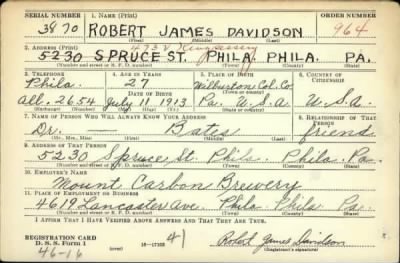 SERIAL NUMBER 1. NAME (Print) ORDER NUMBER
3870 ROBERT JAMES DAVIDSON 964
(First) (Middle) (Last)
2. ADDRESS (Print)
5230 SPRUCE ST. PHILA. PHILA. PA.
(Number and street or R. F. D. number) (Town) (County) (State)
3. TELEPHONE 4. AGE IN YEARS 5. PLACE OF BIRTH 6. COUNTRY OF CITIZENSHIP
Phila. 27 Wilburton Col. Co.
DATE OF BIRTH (Town or county)
All. 2654 July 11 1913 Pa. U.S.A. U.S.A.
(Exchange) (Number) (Mo.) (Day) (Yr.) (State or country)
7. NAME OF PERSON WHO WILL ALWAYS KNOW YOUR ADDRESS 8. RELATIONSHIP OF THAT PERSON
Dr. — Bates friend
(Mr., Mrs., Miss) (First) (Middle) (Last)
9. ADDRESS OF THAT PERSON
5230 Spruce St. Phila. Phila. Pa.
(Number and street or R. F. D. number) (Town) (County) (State)
10. EMPLOYER'S NAME
Mount Carbon Brewery
11. PLACE OF EMPLOYMENT OR BUSINESS
4619 Lancaster Ave. Phila. Phila. Pa.
(Number and street or R. F. D. number) (Town) (County) (State)
I AFFIRM THAT I HAVE VERIFIED ABOVE ANSWERS AND THAT THEY ARE TRUE.
REGISTRATION CARD
D. S. S. Form 1 (over) 16-17105 41 Robert James Davidson
46-16 (Registrant's signature)